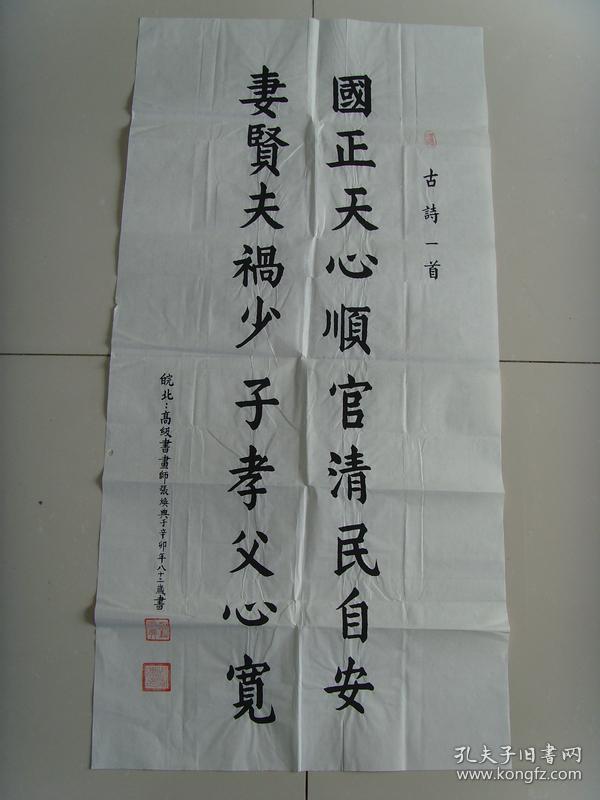 古詩一首
國正天心順官清民自安
妻賢夫禍少子孝父心寬
皖北：高级書畫師張煥興于辛卯年八十二歲書
孔夫子旧書网
www.kongfz.com